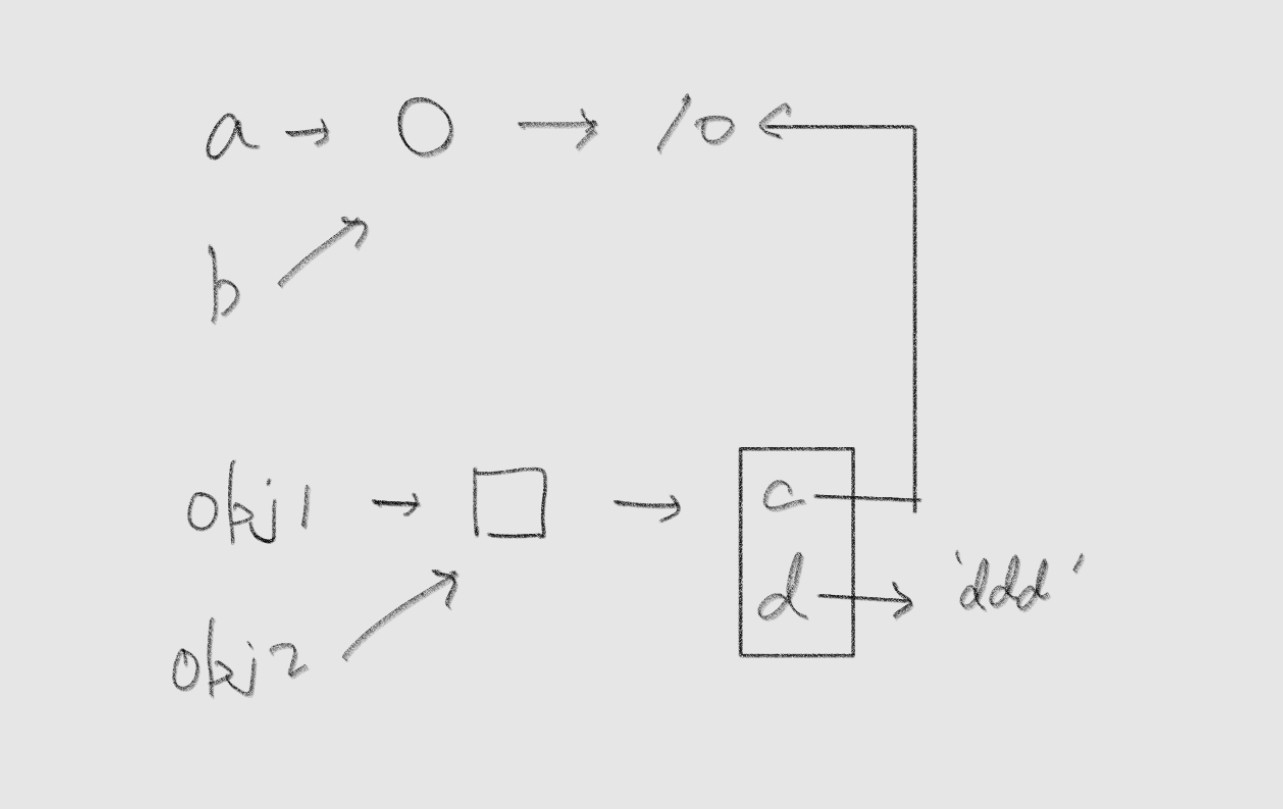 a → O → 10 ←
b
obj1 → □ → c
d → 'ddd'
obj2